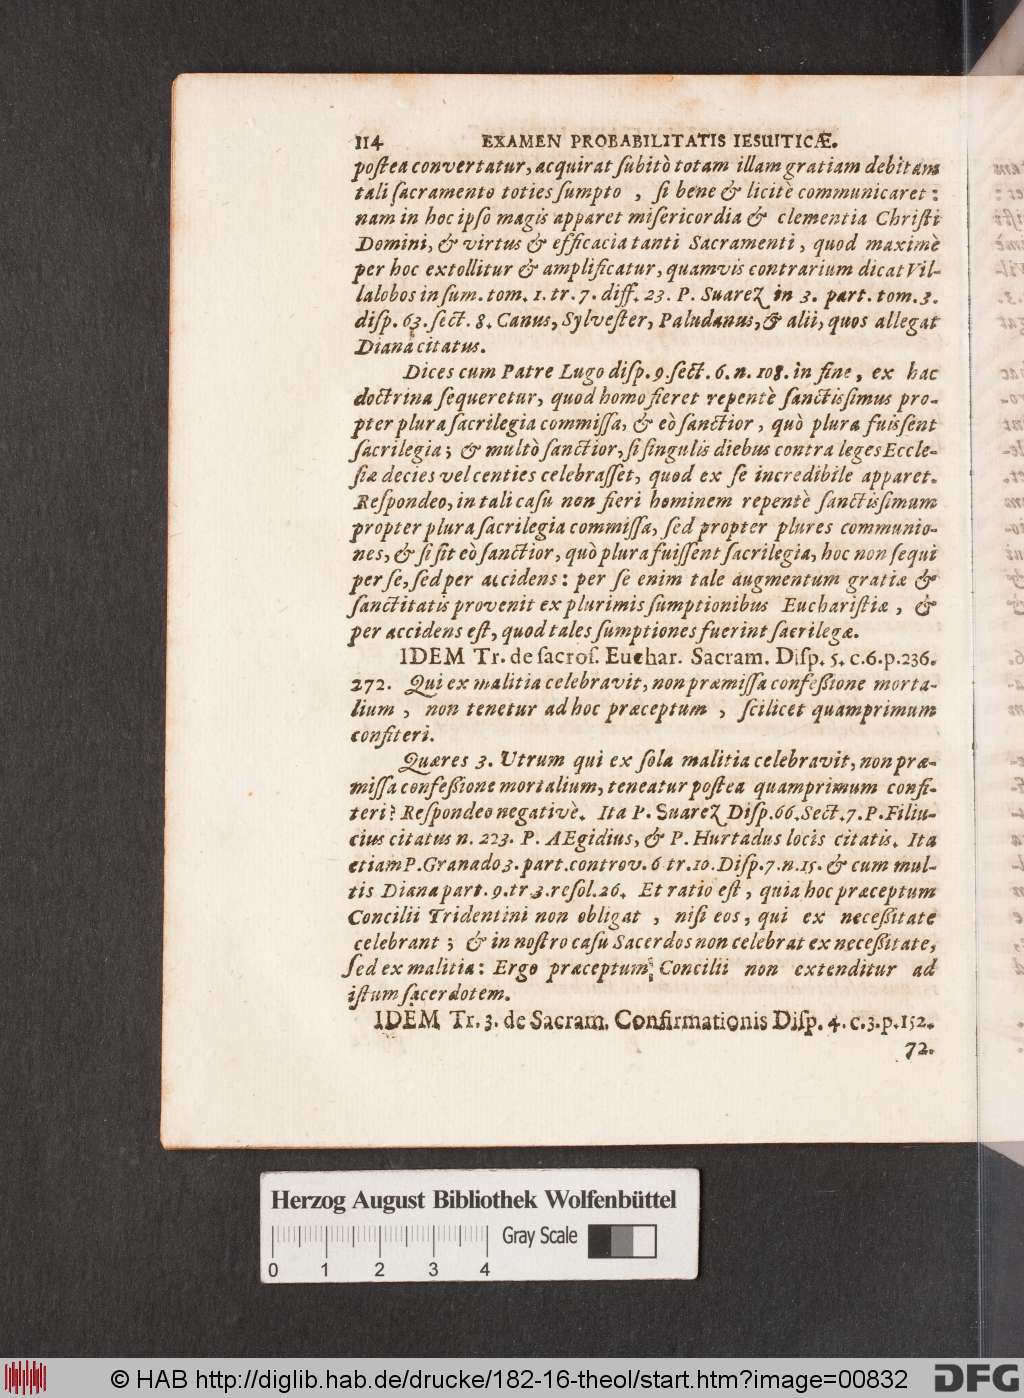 114 EXAMEN PROBABILITATIS IESUITICÆ.
poſtea convertatur, acquirat ſubitò totam illam gratiam debitam
tali ſacramento toties ſumpto , ſi bene & licitè communicaret:
nam in hoc ipſo magis apparet miſericordia & clementia Chriſti
Domini, & virtus & efficacia tanti Sacramenti, quod maximè
per hoc extollitur & amplificatur, quamvis contrarium dicat Vil-
lalobos in ſum. tom. 1. tr. 7. diff. 23. P. Suarez in 3. part. tom. 3.
diſp. 63. ſect. 8. Canus, Sylveſter, Paludanus, & alii, quos allegat
Diana citatus.
Dices cum Patre Lugo diſp. 9. ſect. 6. n. 108. in fine, ex hac
doctrina ſequeretur, quod homo fieret repentè ſanctiſſimus pro-
pter plura ſacrilegia commiſſa, & eò ſanctior, quò plura fuiſſent
ſacrilegia; & multò ſanctior, ſi ſingulis diebus contra leges Eccle-
ſiæ decies vel centies celebraſſet, quod ex ſe incredibile apparet.
Reſpondeo, in tali caſu non fieri hominem repentè ſanctiſſimum
propter plura ſacrilegia commiſſa, ſed propter plures communio-
nes, & ſi ſit eò ſanctior, quò plura fuiſſent ſacrilegia, hoc non ſequi
per ſe, ſed per accidens: per ſe enim tale augmentum gratiæ &
ſanctitatis provenit ex plurimis ſumptionibus Euchariſtiæ, &
per accidens eſt, quod tales ſumptiones fuerint ſacrilegæ.
IDEM Tr. de ſacroſ. Euchar. Sacram. Diſp. 5. c. 6. p. 236.
272. Qui ex malitia celebravit, non præmiſſa confeßione morta-
lium , non tenetur ad hoc præceptum , ſcilicet quamprimum
confiteri.
Quæres 3. Utrum qui ex ſola malitia celebravit, non præ-
miſſa confeßione mortalium, teneatur poſtea quamprimum confi-
teri? Reſpondeo negativè. Ita P. Suarez Diſp. 66. Sect. 7. P. Filiu-
cius citatus n. 223. P. AEgidius, & P. Hurtadus locis citatis. Ita
etiam P. Granado 3. part. controv. 6 tr. 10. Diſp. 7. n. 15. & cum mul-
tis Diana part. 9. tr. 3. reſol. 26. Et ratio eſt, quia hoc præceptum
Concilii Tridentini non obligat , niſi eos, qui ex neceßitate
celebrant ; & in noſtro caſu Sacerdos non celebrat ex neceßitate,
ſed ex malitia: Ergo præceptum Concilii non extenditur ad
iſtum ſacerdotem.
IDEM Tr. 3. de Sacram. Confirmationis Diſp. 4. c. 3. p. 152.
72.
Herzog August Bibliothek Wolfenbüttel
Gray Scale
0 1 2 3 4
© HAB http://diglib.hab.de/drucke/182-16-theol/start.htm?image=00832
DFG